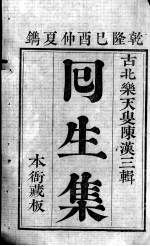 乾隆己酉仲夏鐫
古北樂天叟陳漢三輯
回生集
本衙藏板